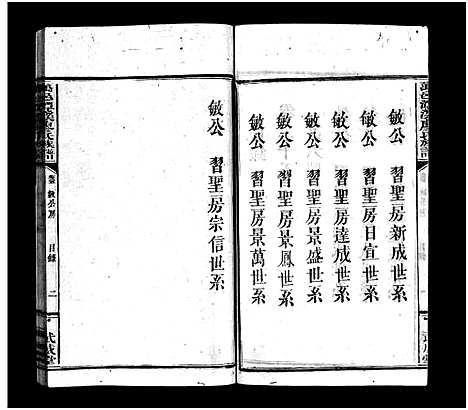 敏公 習聖房新成世系
敏公 習聖房日宣世系
敏公 習聖房達成世系
敏公 習聖房景盛世系
敏公 習聖房景鳳世系
敏公 習聖房景萬世系
敏公 習聖房宗信世系
敏公房 目錄 二
武城堂